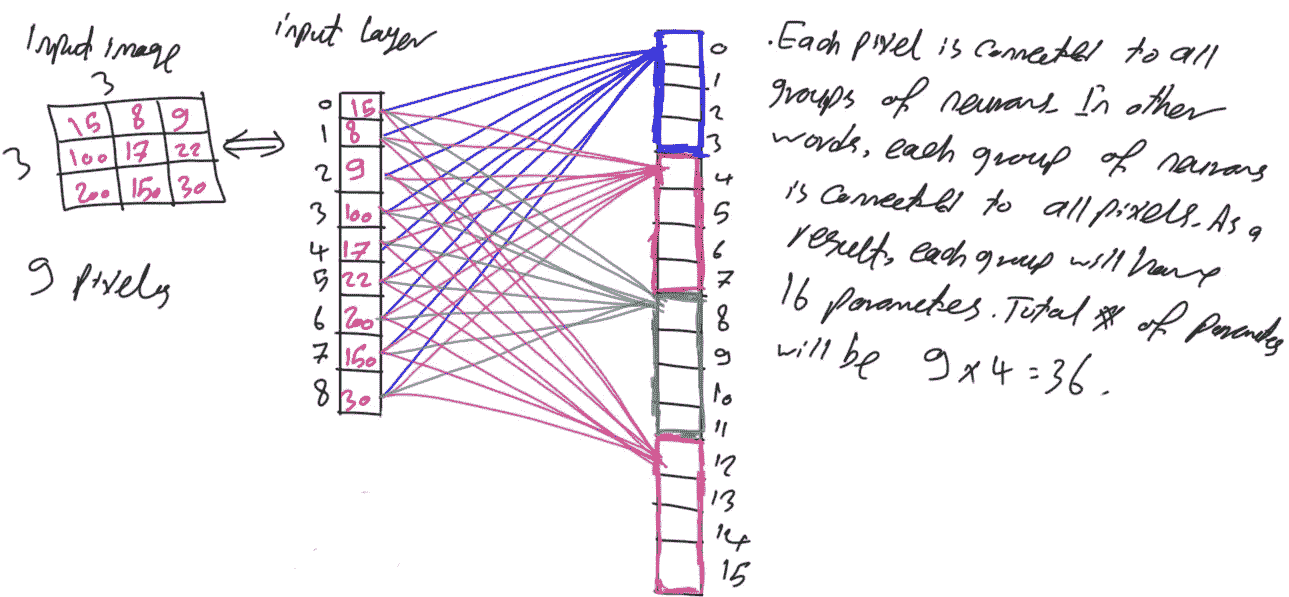 Input image
3
15 8 9
3
100 17 22
200 150 30
9 pixels
input Layer
0 15
1 8
2 9
3 100
4 17
5 22
6 200
7 150
8 30
0
1
2
3
4
5
6
7
8
9
10
11
12
13
14
15
.Each pixel is connected to all
groups of neurons. In other
words, each group of neurons
is connected to all pixels. As a
result, each group will have
16 parameters. Total # of parameters
will be 9 x 4 = 36.